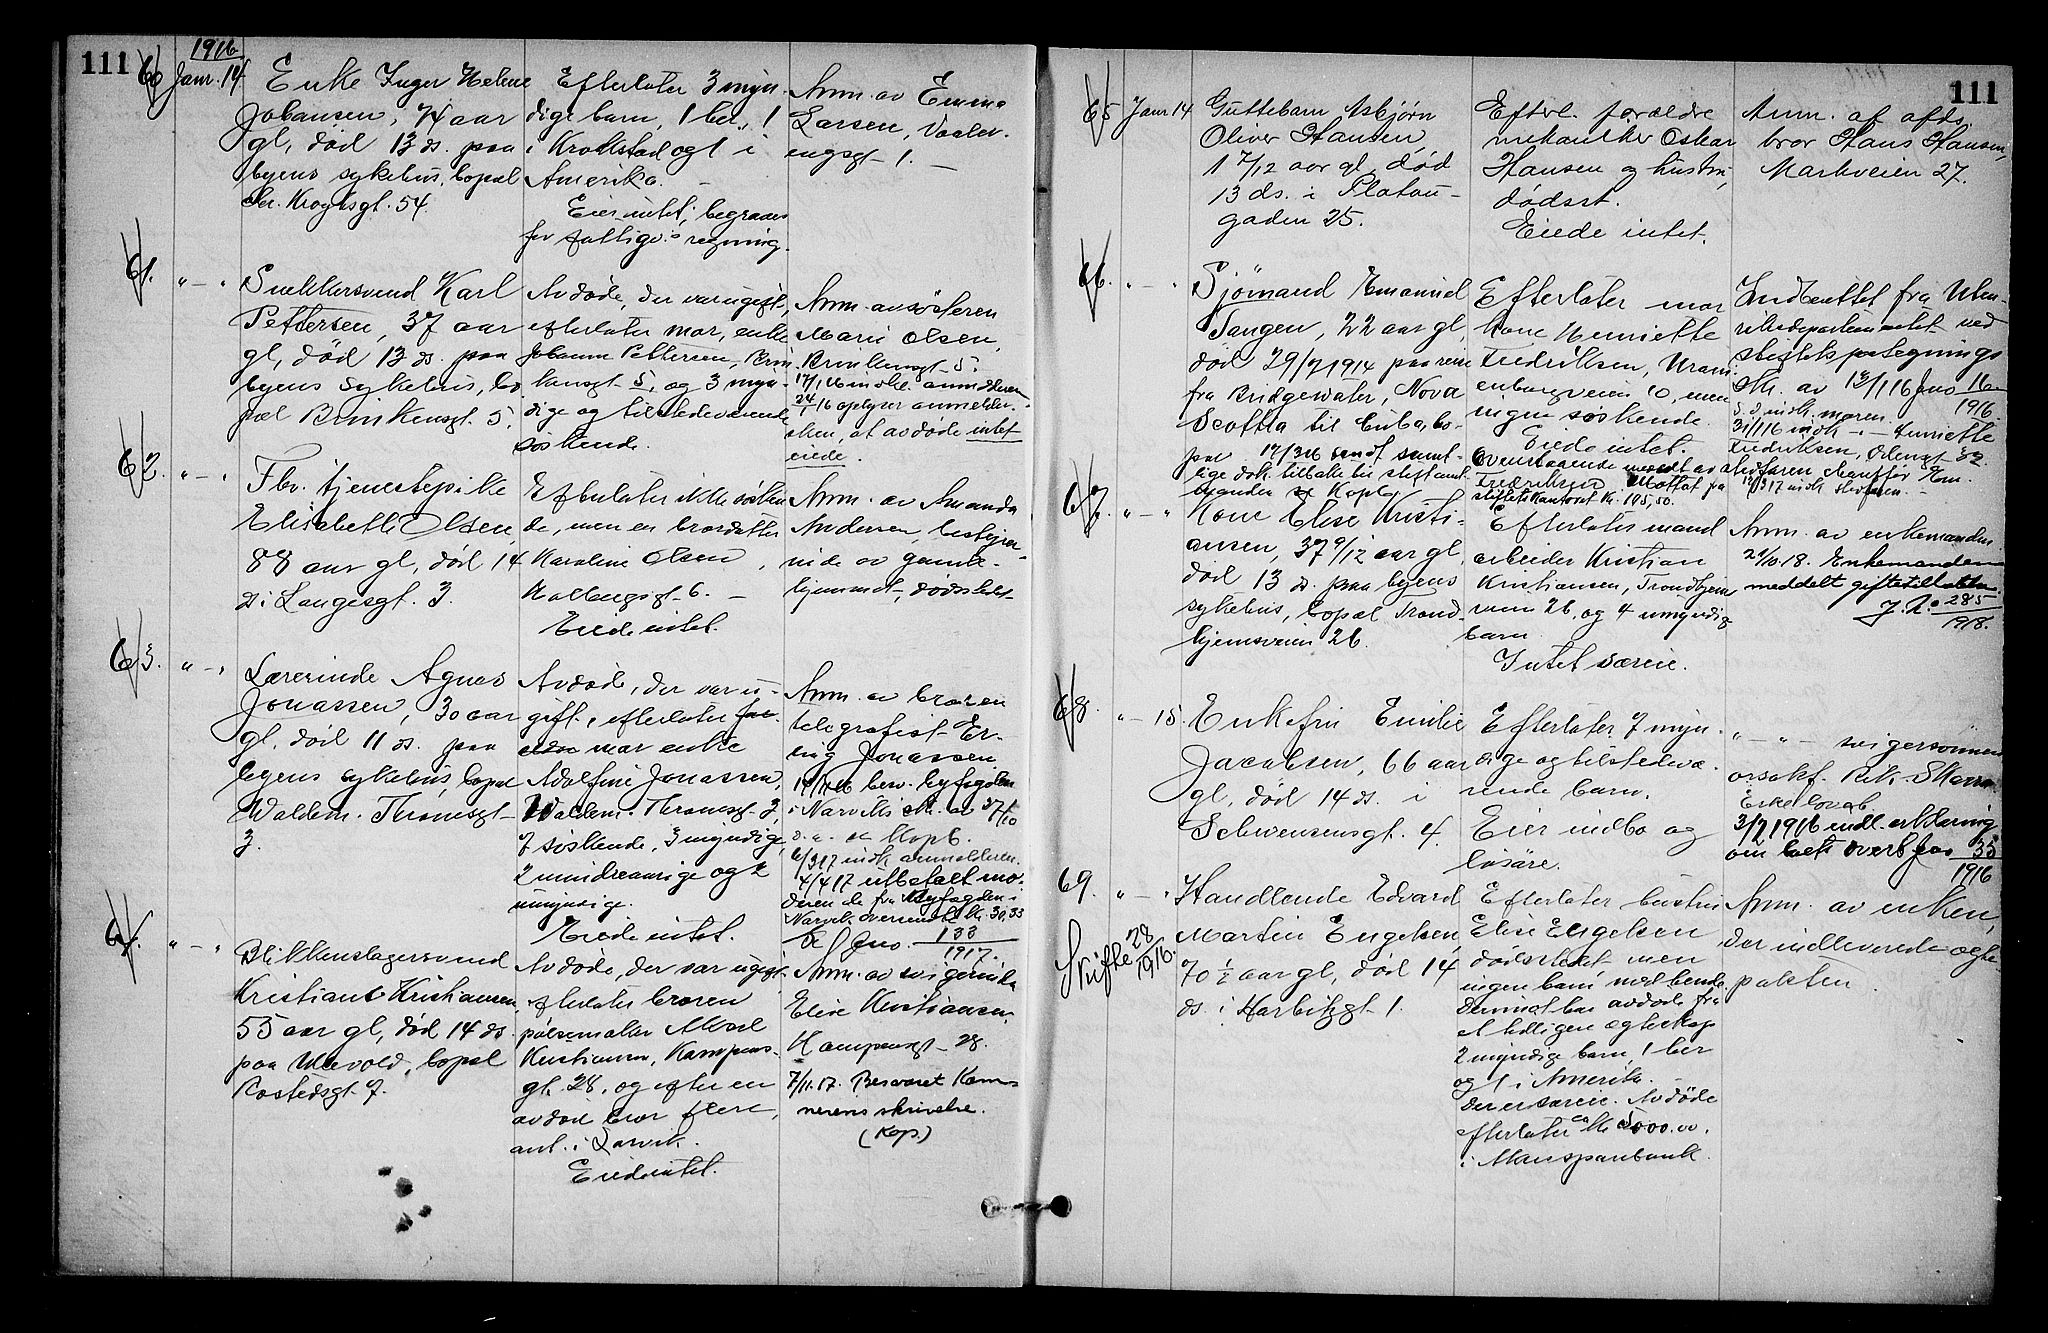 111
1916
60 Janr. 14.
Enke Inger Helene
Johansen, 74 aar
gl, død 13 ds. paa
byens sykehus, bopæl
Chr. Kroghsgt. 54.
Efterlater 3 myn-
dige barn, 1 her, 1
i Kraakstad og 1 i
Amerika. –
Eier intet, begraves
for fattigv:s regning.
Anm. av Emma
Larsen, Vaaler-
engsgt 1. –
61. " – "
Snekkersvend Karl
Pettersen, 37 aar
gl, død 13 ds. paa
byens sykehus, bo
pæl Brinkensgt. 5.
Avdøde, der var ugift,
efterlater mor, enke
Johanne Pettersen, Brin
kensgt 5, og 3 myn-
dige og tilstedeværende
søskende.
Anm. av søsteren
Marie Olsen,
Brinkensgt 5.
17/1 16 indk. anmelderen
24/1 16 oplyser anmelder-
sken, at avdøde intet
eiede.
62. " – "
Fhv. tjenestepike
Elisabeth Olsen,
88 aar gl, død 14
ds i Langesgt. 3.
Efterlater ikke søsken
de, men en brordatter
Karoline Olsen,
Kolbergsgt 6. –
Eiede intet.
Anm. av Amanda
Andersen, bestyrer-
inde av gamle-
hjemmet, dødsstedet
63. " – "
Lærerinde Agnes
Jonassen, 30 aar
gl, død 11 ds. paa
byens sykehus, bopæl
Waldem. Thranesgt
3.
Avdøde, der var u-
gift, efterlater for-
ældre mor enke
Adolfine Jonassen,
Waldem. Thranesgt 3,
7 søskende, 3 myndige,
2 mindreaarige og 2
umyndige.
Eiede intet.
Anm. av broren
telegrafist Er-
ling Jonassen
byfogden
i Narvik skr. av 27/10
Kopb.
6/3 17 indk anmelderen.
4/4 17 utbetalt mo-
deren de fra Byfogden i
Narvik oversendte kr. 30,33
Jno. 133
1917.
64. " – "
Blikkenslagersvend
Kristian Kristiansen,
55 aar gl, død 14 ds.
paa Ullevold, bopæl
Rostedsgt 7.
Avdøde, der var ugift,
efterlater broren
pølsemaker Alvart
Kristiansen, Kampens-
gt. 28, og efter en
avdød bror flere,
ant. i Larvik.
Eiede intet.
Anm. av svigerinde
Elise Kristiansen,
Kampensgt 28.
7/11.17. Besvaret Kem-
nerens skrivelse.
(Kop.)
111
65 Janr 14
Guttebarn Asbjørn
Oliver Hansen,
1 7/12 aar gl, død
13 ds. i Platou-
gaden 25.
Efterl. forældre
mekaniker Oskar
Hansen og hustru,
dødsst.
Eiede intet.
Anm. af afds
bror Hans Hansen,
Markveien 27.
66. " – "
Sjømand Emanuel
Tangen, 22 aar gl,
død 29/7 1914 paa reise
fra Bridgewater, Nova
Scottia til Cuba, bo-
pæl
17/3 16 sendt samt-
lige dok. tilbake til skiftsamt
Kopb
Efterlater mor
kone Henriette
Fredriksen, Urani
enborgveien 10, men
ingen søskende.
Eiede intet.
Ovenstaaende
Fredriksen Mottat fra
skiftets kontoret kr. 105,50.
Indberettet fra Uten-
riksdepartementet ved
stiftets paategnings
skr. av 13/1 16 Jno 16
1916.
S. d. indk. moren.
31/1 16 indk – " – Henriette
Fredriksen, Odensgt 32
stedfaren
12/3 17 indk stedfaren. –
67. " – "
Kone Elise Kristi-
ansen, 37 9/12 aar gl,
død 13 ds. paa byens
sykehus, bopæl Trond-
hjemsveien 26.
Efterlater mand
arbeider Kristian
Kristiansen, Trondhjems
veien 26, og 4 umyndige
barn.
Intet særeie.
Anm. av enkemanden
29/10.18. Enkemanden
meddelt giftetilladelse.
J. No 285
1918.
68. " – 15.
Enkefru Emilie
Jacobsen, 66 aar
gl, død 14 ds. i
Schwensensgt. 4.
Efterlater 7 myn-
dige og tilstedevæ-
rende barn.
Eier indbo og
løsøre.
" – " – svigersønnen
orsakf.
Erkl. lovab.
3/2 1916 indl. erklæring
om boets overt Jno 35
1916
69. " – "
Skifte 28
1916.
Handlende Edvard
Martin Engelsen,
70 1/2 aar gl, død 14
ds. i Harbitzgt 1.
Efterlater hustru
Elise Engelsen
dødsstedet men
ingen barn med hende.
Derimot har avdøde fra
et tidligere egteskap
2 myndige barn, 1 her
og 1 i Amerika.
Der er særeie. Avdøde
efterlater ca kr 5000.00.
i Akersparebank.
Anm. av enken,
der indleverede egte-
pakten.